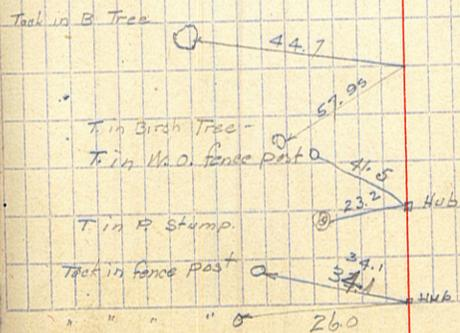 Tack in B. Tree
44.7
57.95
T. in Birch Tree-
T. in W.O. fence Post
41.5
23.2
Hub
T. in P. Stump.
34.1
Tack in fence Post
Hub
" " " "
26.0